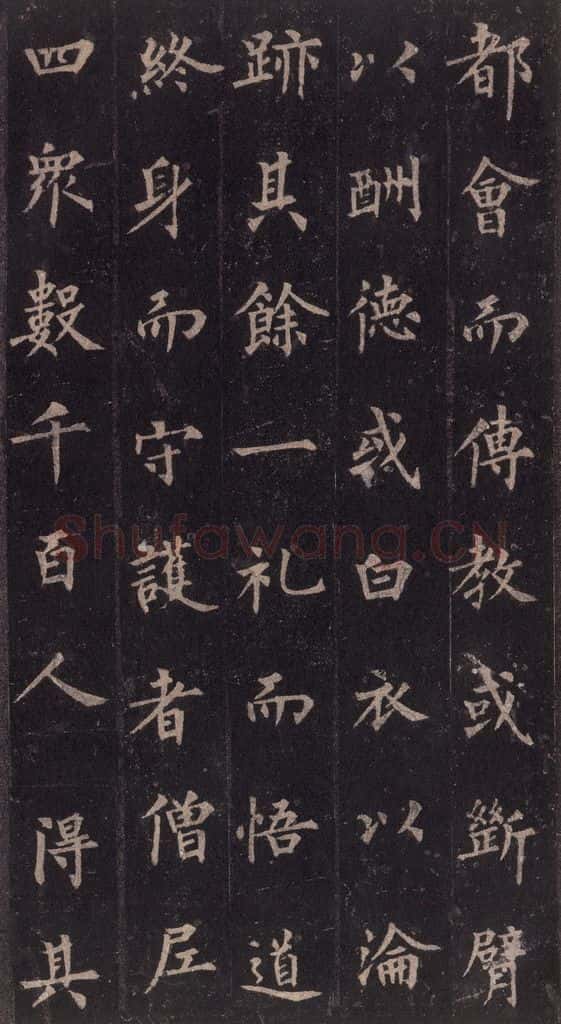 都會而傳教或斷臂
以酬德或白衣以淪
跡其餘一礼而悟道
終身而守護者僧尼
四衆數千百人得其
Shufawang.CN